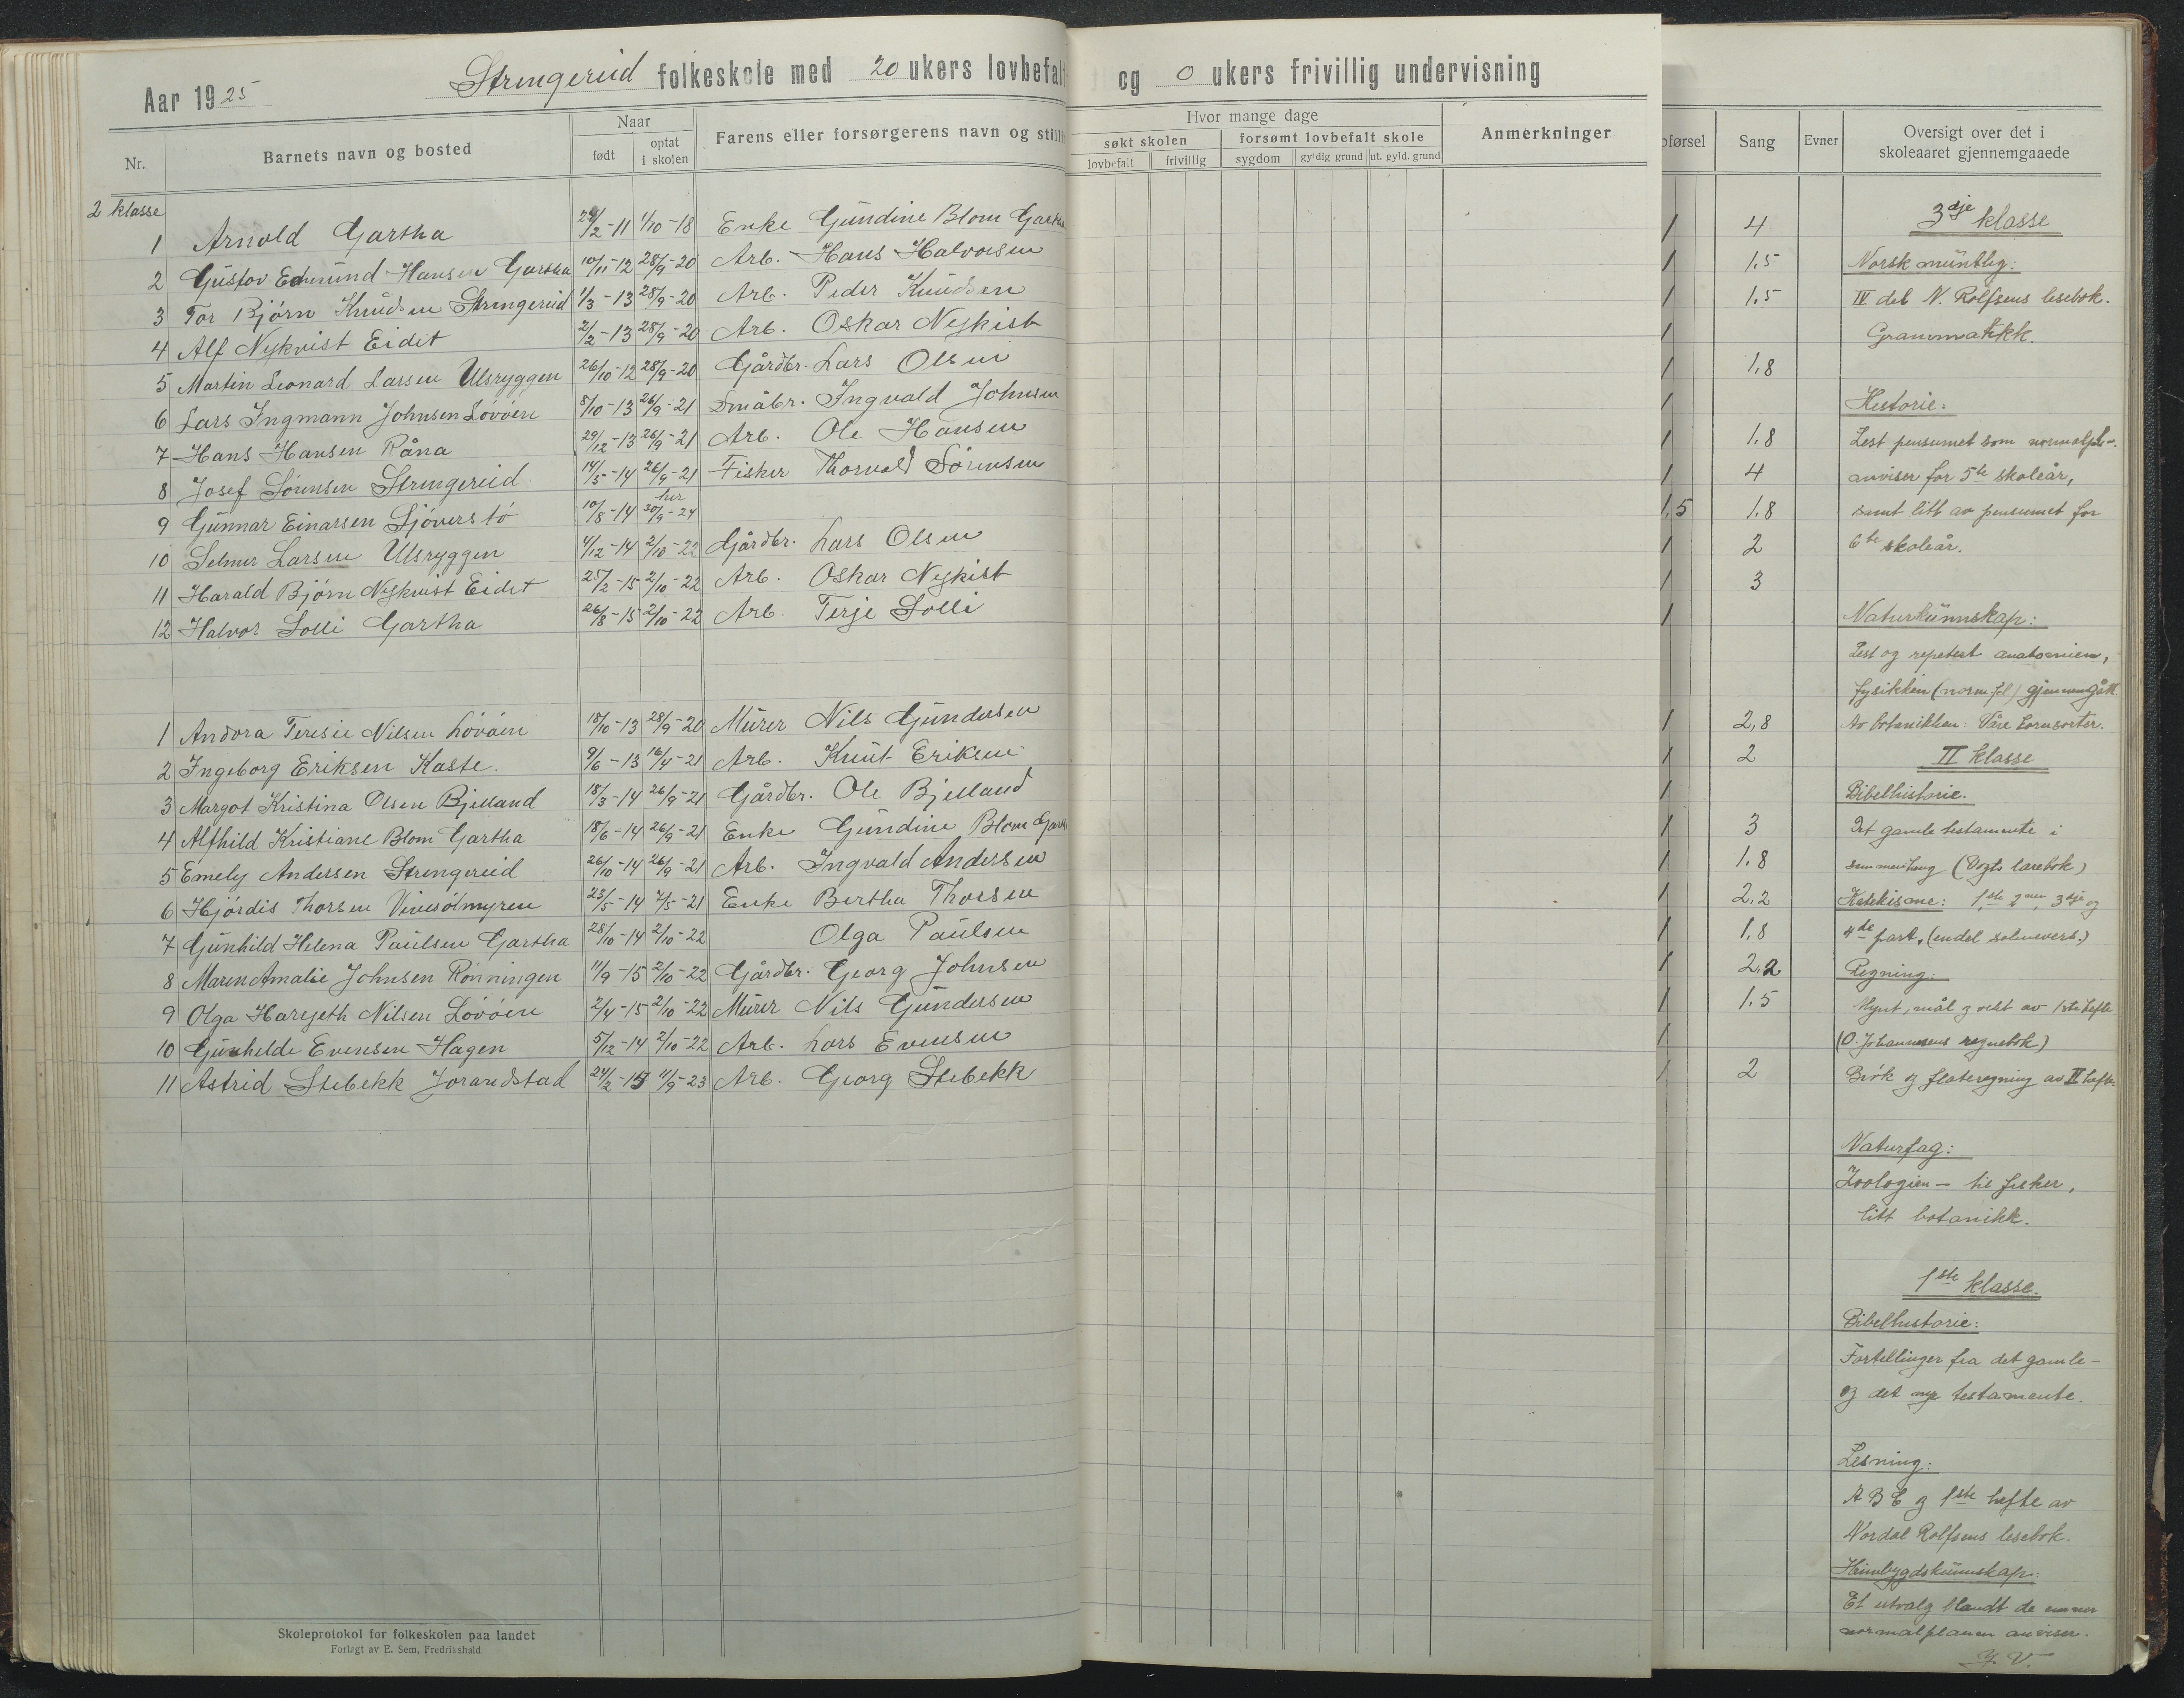 Aar 1925 Stringereid folkeskole med 20 ukers lovbefalt
og 0 ukers frivillig undervisning
Nr.
Barnets navn og bosted
Naar
født
optat
i skolen
Farens eller forsørgerens navn og stilli
Hvor mange dage
søkt skolen
forsømt lovbefalt skole
lovbefalt
frivillig
sygdom
gyldig grund
ut. gyld. grund
Anmerkninger
2 klasse
1 Arnold Gartha 24/2-11 1/10-18 Enke Gundine Blom Gartha
2 Gustov Edmund Hansen Gartha 10/11-12 28/9-20 Arb. Hans Halvorsen
3 Tor Bjørn Knudsen Stringereid 1/3-13 28/9-20 Arb. Peder Knudsen
4 Alf Nykvist Eidet 2/2-13 28/9-20 Arb. Oskar Nykist
5 Martin Leonard Larsen Ulsryggen 26/10-12 28/9-20 Gårdbr. Lars Olsen
6 Lars Ingmann Johnsen Lövöen 8/10-13 26/9-21 Småbr. Ingvald Johnsen
7 Hans Hansen Råna 29/12-13 26/9-21 Arb. Ole Hansen
8 Josef Sörensen Stringereid. 14/5-14 26/9-21 Fisker Thorvald Sörensen
9 Gunnar Einarsen Sjöverstö 10/8-14 her 30/9-24
10 Selmer Larsen Ulsryggen 4/12-14 2/10-22 Gårdbr. Lars Olsen
11 Harald Bjørn Nykvist Eidet 25/2-15 2/10-22 Arb. Oskar Nykist
12 Halvor Solli Gartha 26/8-15 2/10-22 Arb. Terje Solli
1 Andora Teresie Nilsen Lövöen 18/10-13 28/9-20 Murer Nils Gundersen
2 Ingeborg Eriksen Kaste. 9/6-13 16/4-21 Arb. Knut Eriksen
3 Margot Kristina Olsen Bjelland 18/3-14 26/9-21 Gårdbr. Ole Bjelland
4 Alfhild Kristiane Blom Gartha 18/6-14 26/9-21 Enke Gundine Blom Gart
5 Emely Andersen Stringereid 26/10-14 26/9-21 Arb. Ingvald Andersen
6 Hjördis Thorsen Vivesölmyren 23/5-14 7/5-21 Enke Bertha Thorsen
7 Gunhild Helena Paulsen Gartha 28/10-14 2/10-22 Olga Paulsen
8 Maren Amalie Johnsen Rönningen 11/9-15 2/10-22 Gårdbr. Georg Johnsen
9 Olga Hargjeth Nilsen Lövöen 2/4-15 2/10-22 Murer Nils Gundersen
10 Gunhelde Evensen Hagen 5/12-14 2/10-22 Arb. Lars Evensen
11 Astrid Stebekk Jorandstad 24/2-15 11/9-23 Arb. Georg Stebekk
Skoleprotokol for folkeskolen paa landet
Forlagt av E. Sem, Fredrikshald
pførsel
Sang
Evner
Oversigt over det i
skoleaaret gjennemgaaede
1 4
1 1,5
1 1,5
1
1 1,8
1
1 1,8
1 4
1,5 1,8
1 2
1 3
1
1 2,8
1 2
1
1 3
1 1,8
1 2,2
1 1,8
1 2,2
1 1,5
1
1 2
3dje klasse
Norsk muntlig:
IV del N. Rolfsens lesebok.
Grammatikk.
Historie:
Lest pensumet som normalpl-
anviser for 5te skoleår,
samt litt av pensumet for
6te skoleår.
Naturkunnskap:
Lest og repetert anatomien,
fysikken (norm.pl) gjennemgått
Av botanikken: Våre kornsorter.
II klasse
Bibelhistorie.
Det gamle testamente i
sammenheng (Vogts lærebok)
Katekisme: 1ste, 2nen, 3dje og
4de part, (endel salmevers.)
Regning:
Mynt, mål og vekt av 1ste hefte
(O. Johannesens regnebok)
Brök og flateregning av II hefte.
Naturfag:
Zoologien - til fisker,
litt botanikk.
1ste klasse.
Bibelhistorie:
Fortellinger fra det gamle-
og det nye testamente.
Lesning:
A B C og 1ste hefte av
Nordal Rolfsens lesebok.
Heimbygdskunnskap:
Et utvalg blandt de emner
normalplanen anviser.